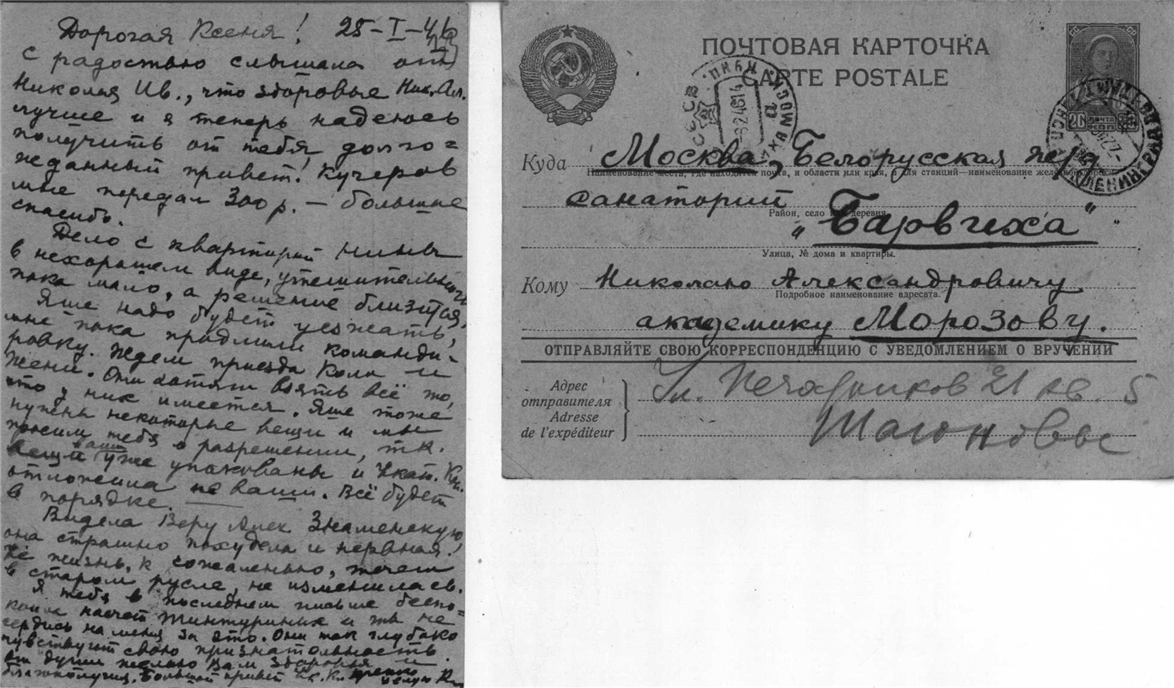 Дорогая Ксеня! 25-I-46
с радостью слышала от
Николая Ив., что здоровье Ник. Ал.
лучше и я теперь надеюсь
получить от тебя долго=
жданный привет! Кучеров
мне передал 300 р. — большое
спасибо.
Дело с квартирой Нины
в нехорошем виде, утешительного
пока мало, а решение близится,
Яше надо будет уезжать,
мне пока продлили команди-
ровку. Ждем приезда Коли и
Жени. Они хотят взять всё то,
что у них имеется. Яше тоже
нужны некоторые вещи и мы
просим тебя о разрешении, т.к.
вещи ваши уже упакованы и Екат. Кр.
отложила не ваши. Всё будет
в порядке.
Видела Веру Алек Знаменскую,
она страшно похудела и нервная!
Её жизнь, к сожаленью, течет
в старом русле, не изменилась.
Я тебя в последнем письме беспо-
коила насчет и ты не
сердись на меня за это. Они так глубоко
чувствуют свою признательность.
От души желаю Вам здоровья и
благополучия. Большой привет
ПОЧТОВАЯ КАРТОЧКА
CARTE POSTALE
СССР
ЛЕНИНГРАД
Куда Москва, Белорусская
Наименование места, где находится почта, и области или края, а для станций—наименование
санаторий
Район, село или деревня.
„Барвиха"
Улица, № дома и квартиры.
Кому Николаю Александровичу
Подробное наименование адресата.
академику Морозову.
ОТПРАВЛЯЙТЕ СВОЮ КОРРЕСПОНДЕНЦИЮ С УВЕДОМЛЕНИЕМ О ВРУЧЕНИИ
Адрес
отправителя
Adresse
de l'expéditeur
Ул. Печатников 21 кв. 5
Шагоновы